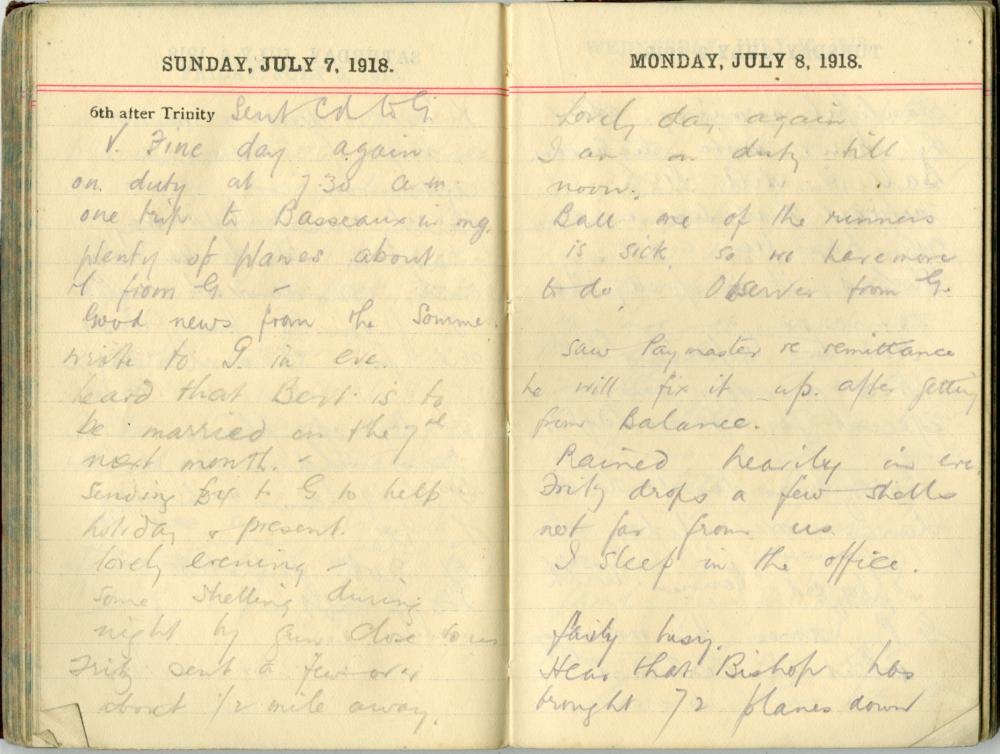 SUNDAY, JULY 7, 1918.
6th after Trinity Sent Cd to G
V. Fine day again
on duty at 7.30 a.m.
one trip to Basseaux in mg.
plenty of planes about
H from G. -
Good news from the Somme.
write to G in eve.
heard that Bert is to
be married on the 7th
next month. -
sending to G to help
holiday & present.
lovely evening -
some shelling during
night by guns close to us
Fritz sent a few over
about 1/2 mile away.
MONDAY, JULY 8, 1918.
Lovely day again
I am on duty till
noon.
Ball one of the runners
is sick so we have more
to do. Observer from G.
saw Paymaster re remittance
he will fix it up. after getting
from Balance.
Rained heavily in eve.
Fritz drops a few shells
not far from us.
I sleep in the office.
fairly busy.
Hear that Bishop has
brought 72 planes down